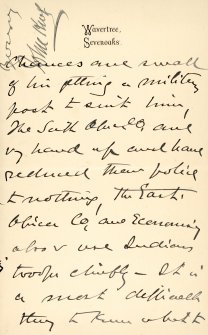 Wavertree,
Sevenoaks.
Chances are small
of his getting a military
post to suit him,
The South African Co are
hard up and have
reduced their police
to nothing, the East
African Co, are Economising
also & use Indian
troops chiefly – It is
a most difficult
thing to know what